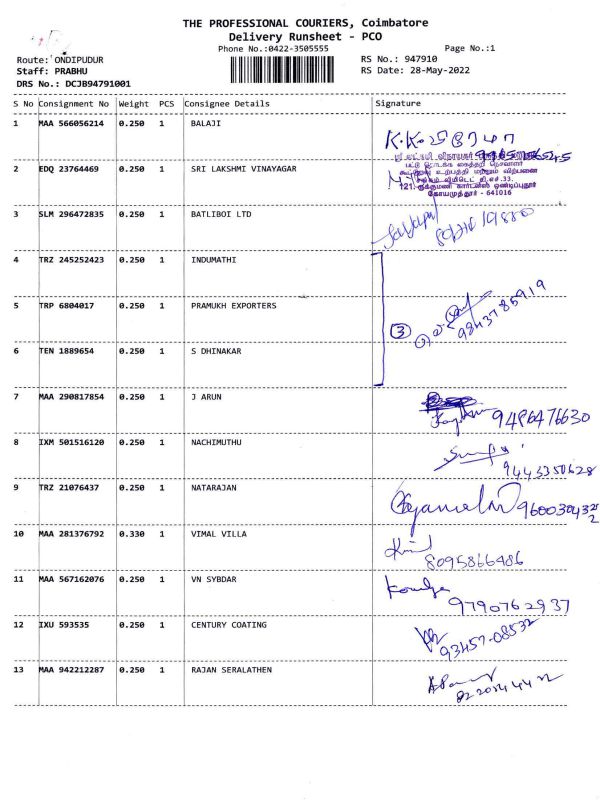 THE PROFESSIONAL COURIERS, Coimbatore
Delivery Runsheet - PCO
Phone No.:0422-3505555 Page No.:1
Route: ONDIPUDUR RS No.: 947910
Staff: PRABHU RS Date: 28-May-2022
DRS No.: DCJB94791001
S No Consignment No Weight PCS Consignee Details Signature
1 MAA 566056214 0.250 1 BALAJI
2 EDQ 23764469 0.250 1 SRI LAKSHMI VINAYAGAR
கோயமுத்தூர் - 641016
3 SLM 296472835 0.250 1 BATLIBOI LTD
4 TRZ 245252423 0.250 1 INDUMATHI
5 TRP 6804017 0.250 1 PRAMUKH EXPORTERS 9843785919
3
6 TEN 1889654 0.250 1 S DHINAKAR
7 MAA 290817854 0.250 1 J ARUN 9486476630
8 IXM 501516120 0.250 1 NACHIMUTHU
9443350628
9 TRZ 21076437 0.250 1 NATARAJAN
10 MAA 281376792 0.330 1 VIMAL VILLA
8095866486
11 MAA 567162076 0.250 1 VN SYBDAR
9790762937
12 IXU 593535 0.250 1 CENTURY COATING
93457-08532
13 MAA 942212287 0.250 1 RAJAN SERALATHEN